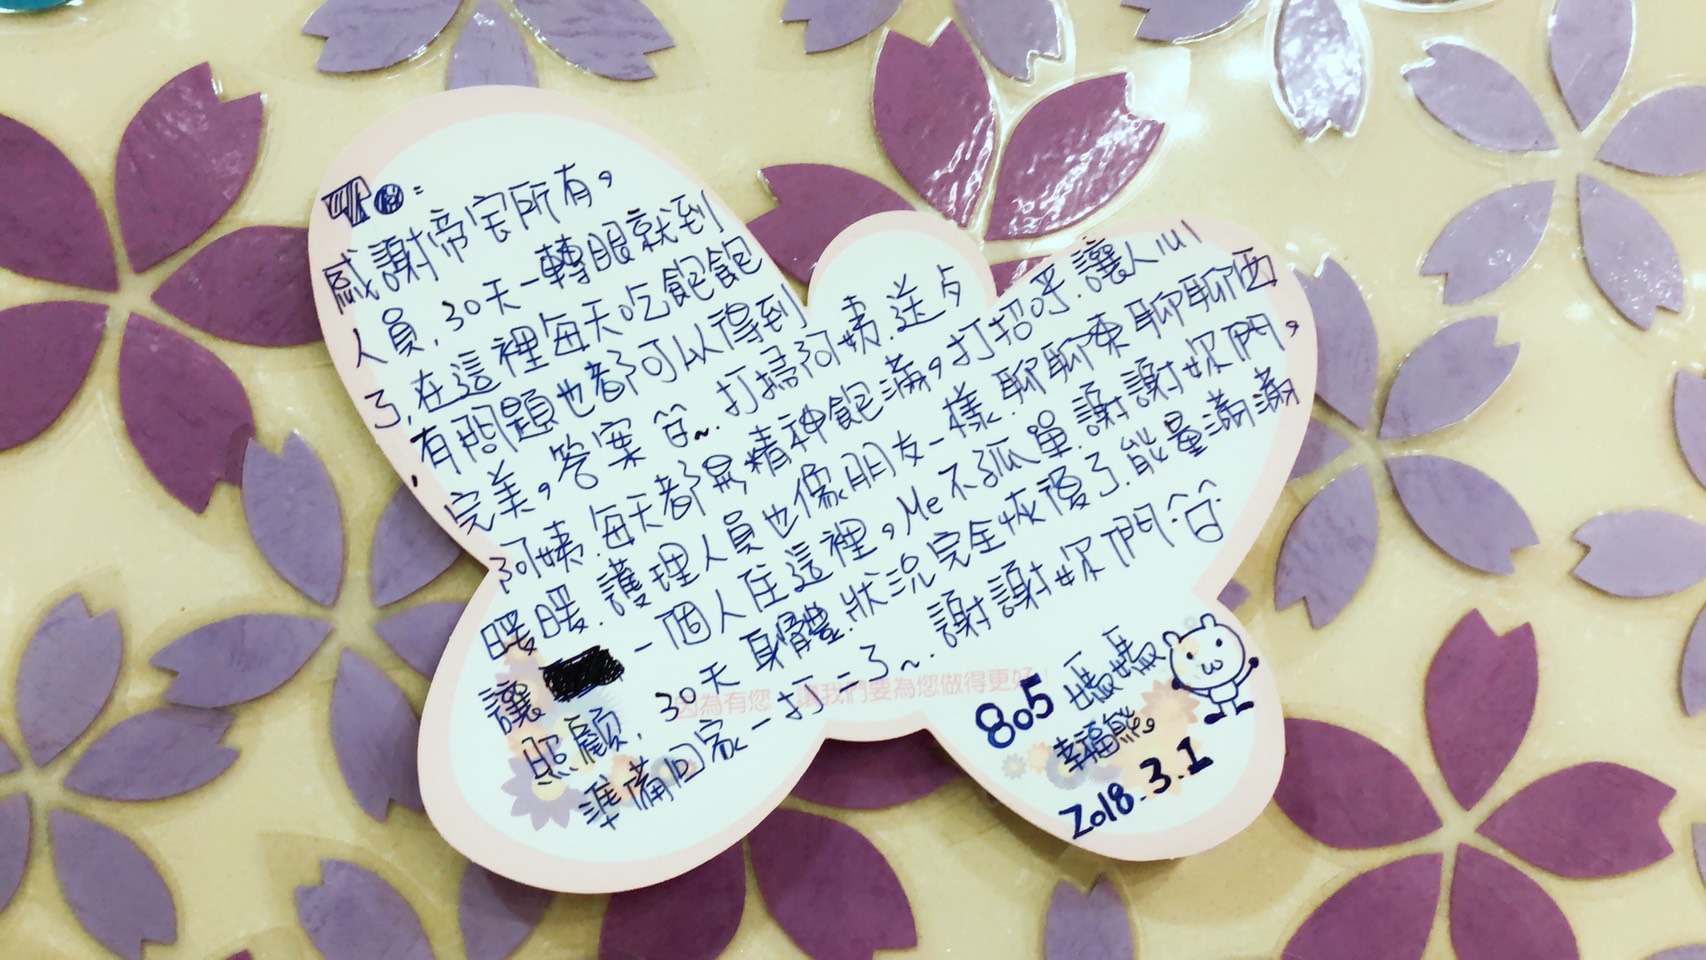 感謝帝宝所有,
人員,30天一轉眼就到
了,在這裡每天吃飽飽
,有問題也都可以得到
完美。答案 ~.打掃阿姨.送夕
阿姨.每天都是精神飽滿,打招呼.讓人
暖暖.護理人員也像朋友一樣.聊聊東聊聊西
讓 一個人住這裡,Me不孤單.謝謝妳們,
照顧,30天身體狀況完全恢復了.能量滿滿
準備回家一打二了~.謝謝妳們
因為有您,讓我們要為您做得更好!
805 媽媽
幸福熊。
2018.3.1